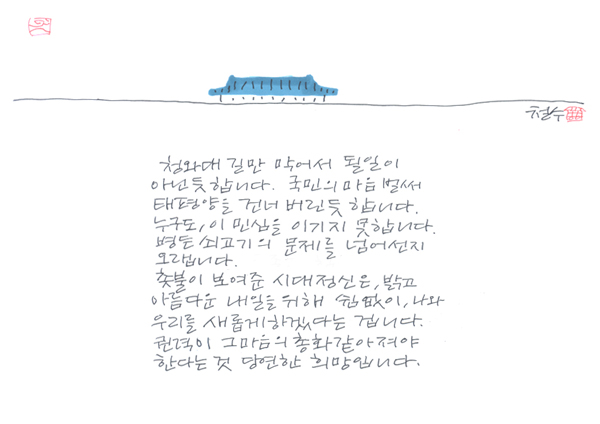 철수
청와대 길만 막어서 될일이
아닌듯합니다. 국민의 마음 벌써
태평양을 건너 버린듯 합니다.
누구도, 이 민심을 이기지 못합니다.
병든 쇠고기의 문제를 넘어선지
오랩니다.
촛불이 보여준 시대정신은, 밝고
아름다운 내일을 위해 쉼없이, 나와
우리를 새롭게하겠다는 겁니다.
권력이 그마음의 총화같아져야
한다는것 당연한 희망입니다.